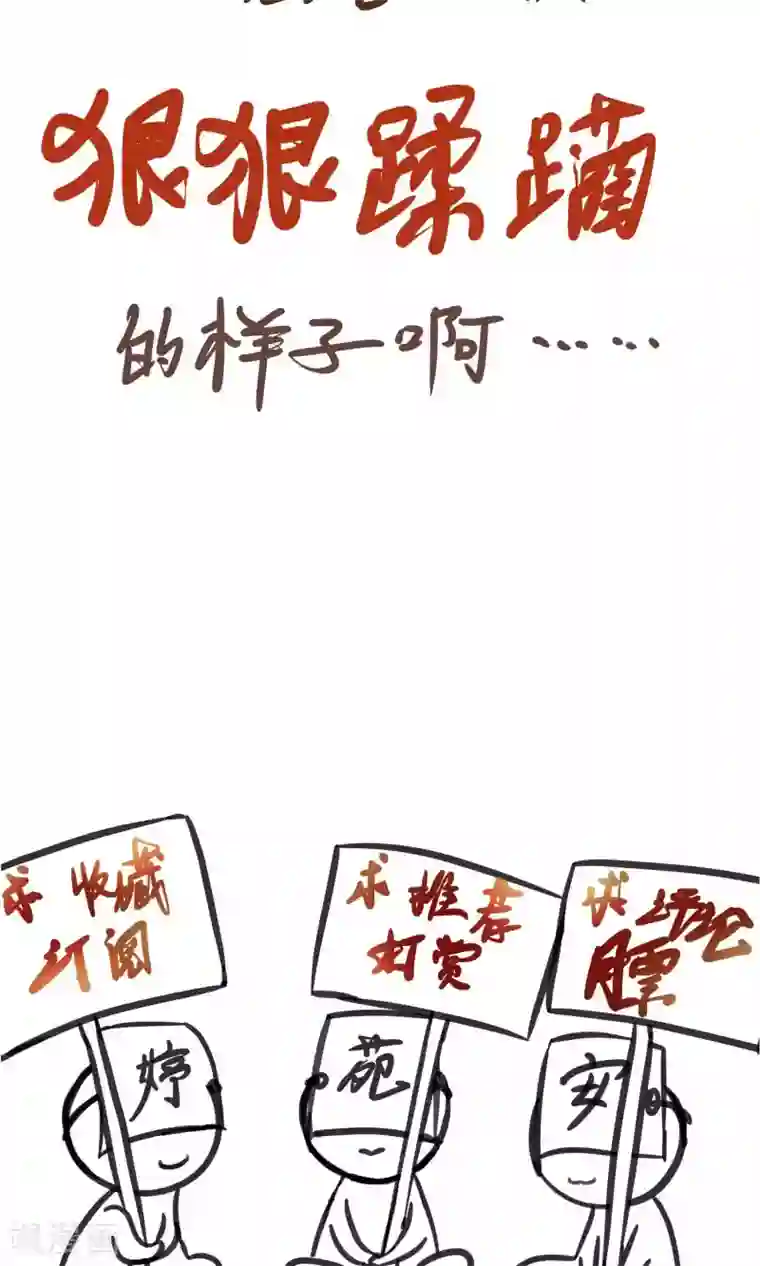 狠狠蹂躏
的样子啊……
求 收藏
订阅
求 推荐
打赏
求 评论
月票
婷
苑
安
漫画